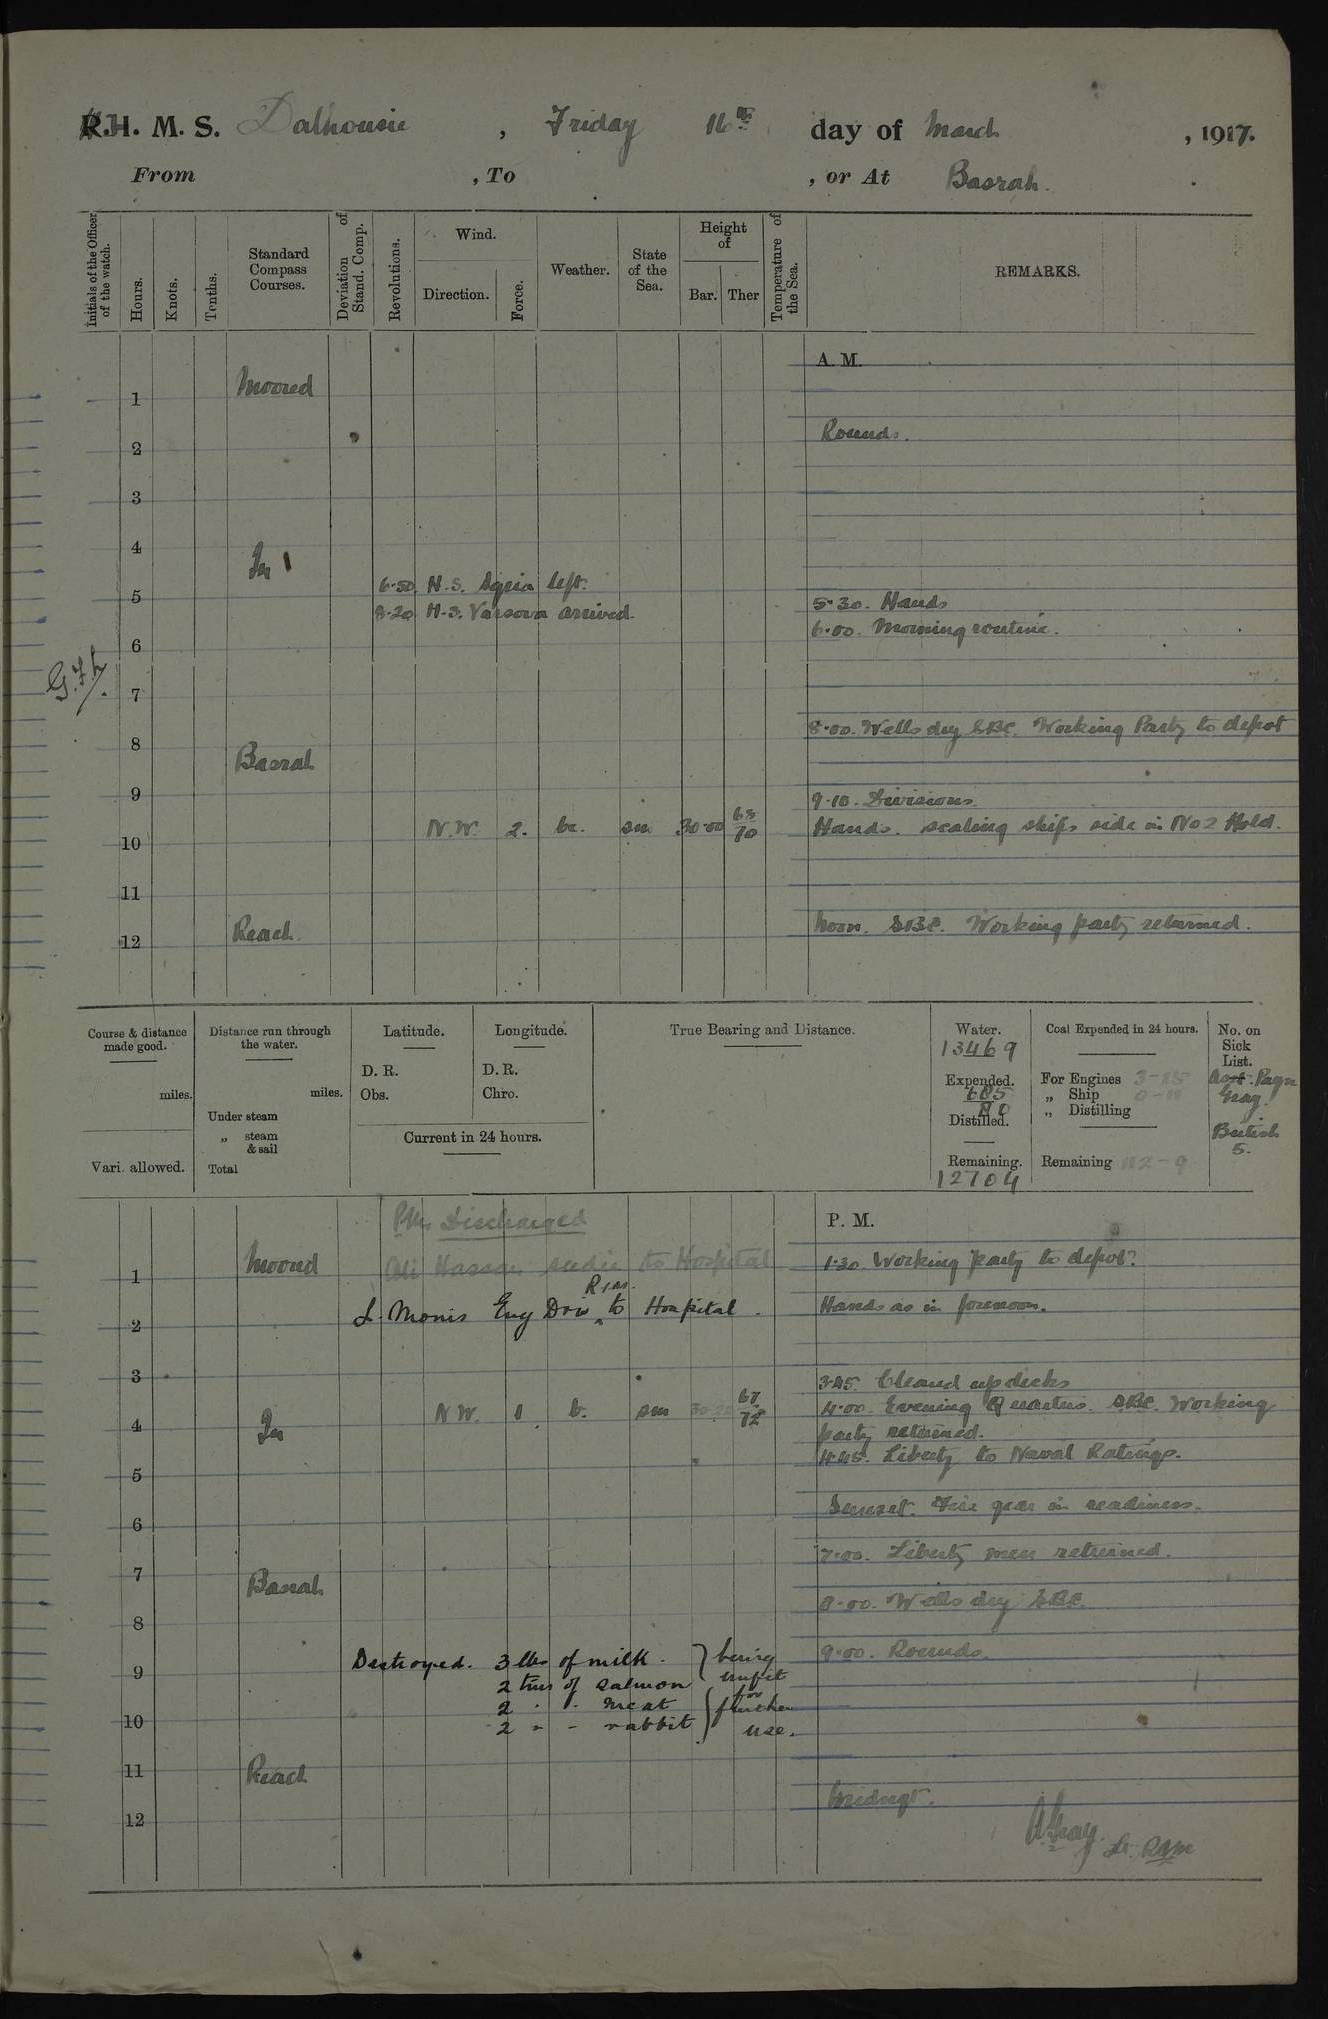 R.I.M. S. Dalhousie, Friday 16th day of March, 1917.
From , To , or At Basrah.
Initials of the Officer of the watch.
Hours.
Knots.
Tenths.
Standard Compass Courses.
Deviation of Stand. Comp.
Revolutions.
Wind.
Direction.
Force.
Weather.
State of the Sea.
Height of
Bar.
Ther
Temperature of the Sea.
REMARKS.
A. M.
Moored
1
Rounds.
2
3
4
In
6.50 H.S. Syria left.
5
5.30. Hands
8.20 H.S. Varsova arrived.
6.00. Morning routine.
6
G.F.h.
7
8.00. Wells dry SBC. Working Party to depot
8
Basrah
9
9.10. Divisions.
N.W. 2. bc. sm 30.00 68/70 Hands. scaling ship's side in No 2 Hold.
10
11
Reach.
12
Noon. SBC. Working party returned.
Course & distance made good.
miles.
Vari. allowed.
Distance run through the water.
miles.
Under steam
„ steam & sail
Total
Latitude.
D. R.
Obs.
Longitude.
D. R.
Chro.
Current in 24 hours.
True Bearing and Distance.
Water.
13469
Expended.
685
80
Distilled.
Remaining.
12704
Coal Expended in 24 hours.
For Engines 3-15
„ Ship
„ Distilling
Remaining 112-9
No. on Sick List.
Payn
Gray.
British
5.
P. M.
Discharged
Moored
1
Ali Hassan to Hospital
1.30 Working party to depot.
L. Monis Eng Driv R.I.M. to Hospital.
Hands as in forenoon.
2
3
3.45. Cleaned up decks
N.W. 1 b. sm 67/72
4.00. Evening Quarters. SBC. Working
In
4
party returned.
4.45. Liberty to Naval Ratings.
5
Sunset. Fire gear in readiness.
6
7.00. Liberty men returned.
7
Basrah
8.00. Wells dry SBC.
8
9.00. Rounds.
Destroyed. 3 lbs of milk. being
9
2 tins of salmon unfit
2 " " meat for further
10
2 " " rabbit use.
11
Reach
Midnight.
12
A Gray.
Lt. RIM